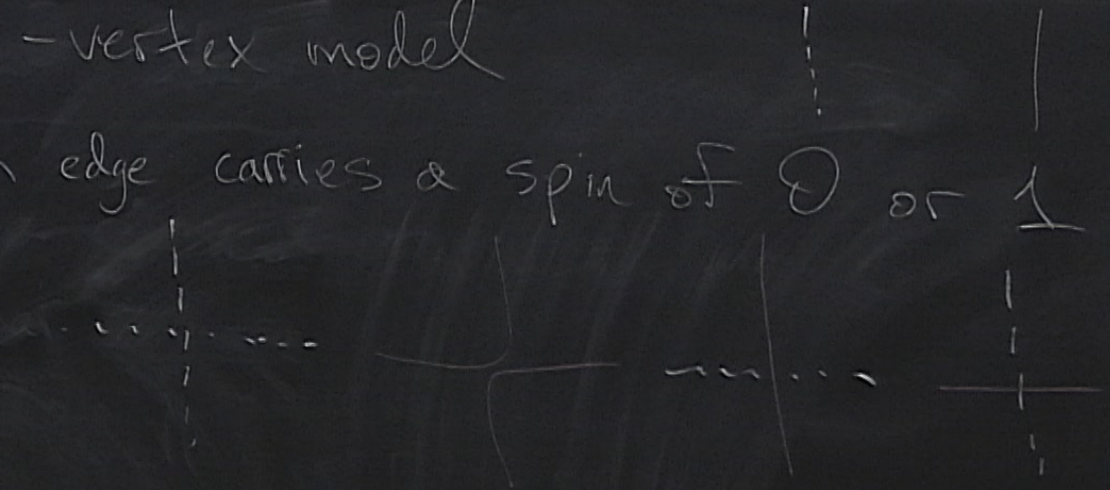 -vertex model
edge carries a spin of 0 or 1